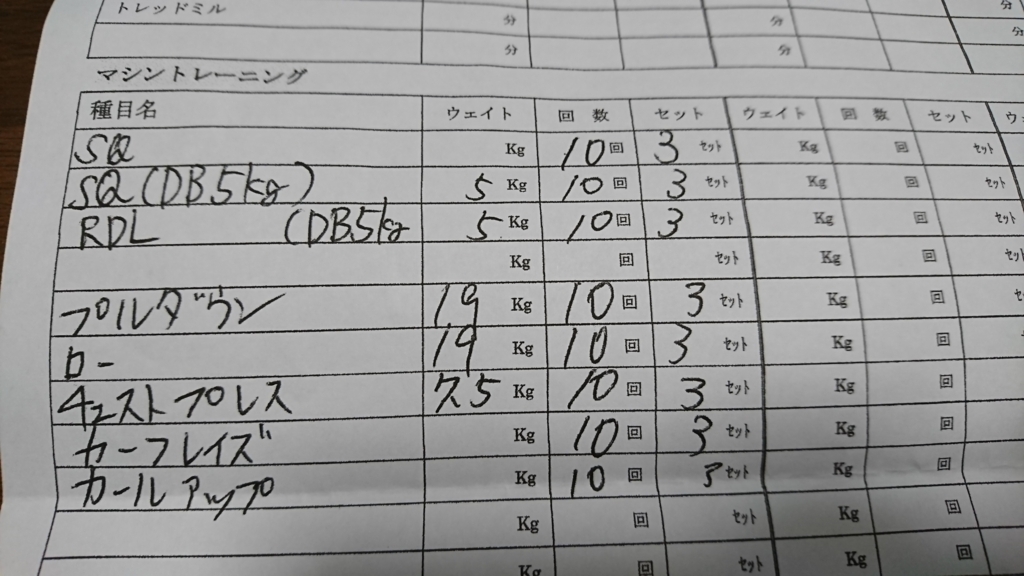 トレッドミル 分 分 分
分 分 分
マシントレーニング
種目名 ウェイト 回数 セット ウェイト 回数 セット ウェ
SQ Kg 10回 3セット Kg 回 セット
SQ(DB5kg) 5Kg 10回 3セット Kg 回 セット
RDL (DB5kg 5Kg 10回 3セット Kg 回 セット
Kg 回 セット Kg 回 セット
プルダウン 19Kg 10回 3セット Kg 回 セット
ロー 19Kg 10回 3セット Kg 回 セット
チェストプレス 7.5Kg 10回 3セット Kg 回 セット
カーフレイズ Kg 10回 3セット Kg 回 セット
カールアップ Kg 10回 3セット Kg 回 セット
Kg 回 セット Kg 回 セット
Kg 回 セット Kg 回 セット